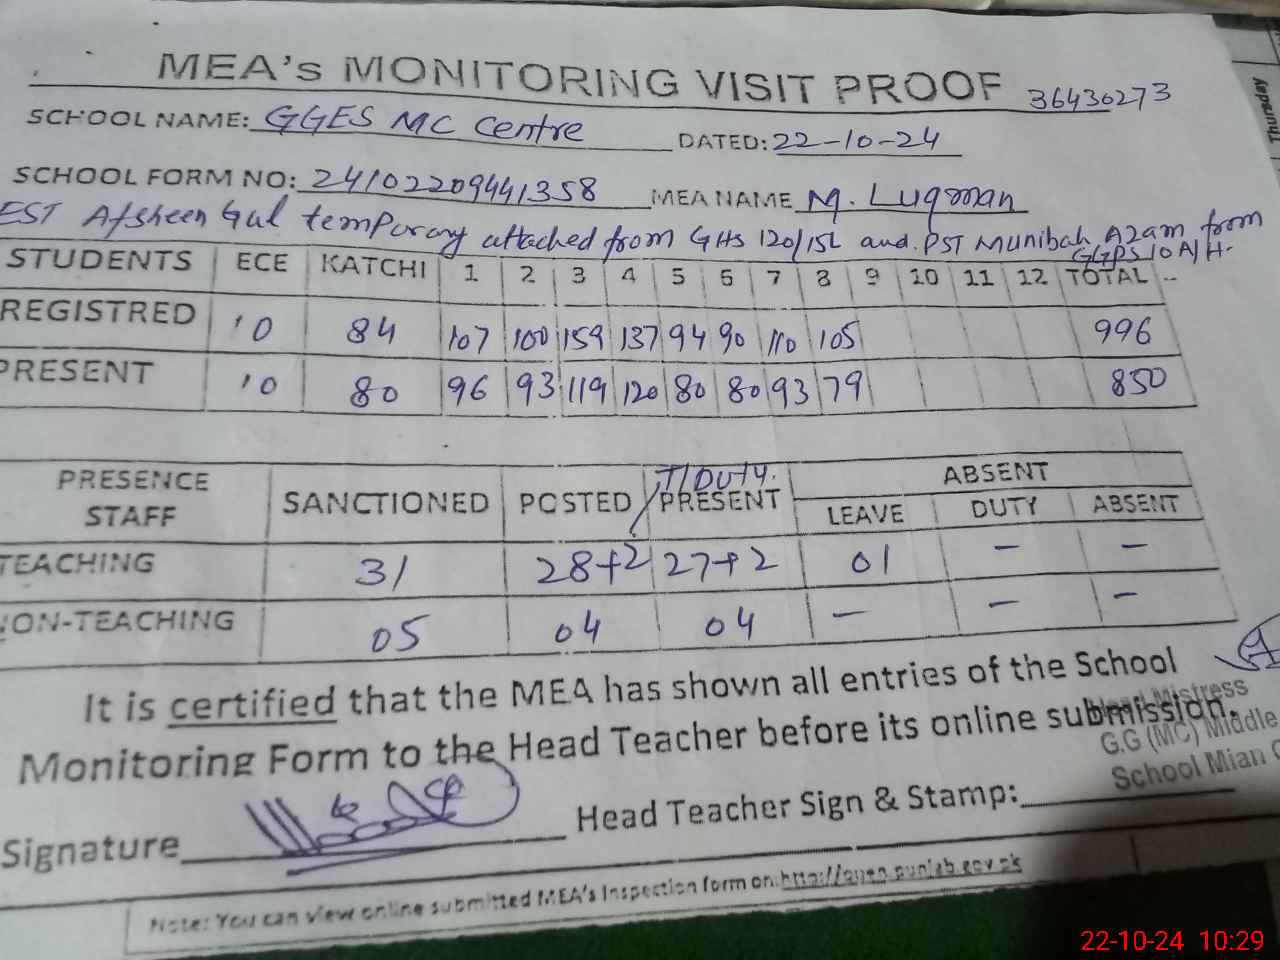 MEA's MONITORING VISIT PROOF 36430273
SCHOOL NAME: GGES MC Centre DATED: 22-10-24
SCHOOL FORM NO: 24102209441358 MEA NAME M. Luqman
EST Afsheen Gul temporary attached from GHS 120/15L and PST Munibah Azam from
GGPS 10 A/H-
STUDENTS ECE KATCHI 1 2 3 4 5 6 7 8 9 10 11 12 TOTAL
REGISTRED 10 84 107 100 159 137 94 90 110 105 996
PRESENT 10 80 96 93 119 120 80 80 93 79 850
PRESENCE STAFF SANCTIONED POSTED T/Duty. PRESENT ABSENT
LEAVE DUTY ABSENT
TEACHING 31 28+2 27+2 01 - -
NON-TEACHING 05 04 04 - - -
It is certified that the MEA has shown all entries of the School
Monitoring Form to the Head Teacher before its online submission.
Head Mistress
G.G (MC) Middle
School Mian
Signature Head Teacher Sign & Stamp:
Note: You can view online submitted MEA's Inspection form on:
Tuesday
22-10-24 10:29